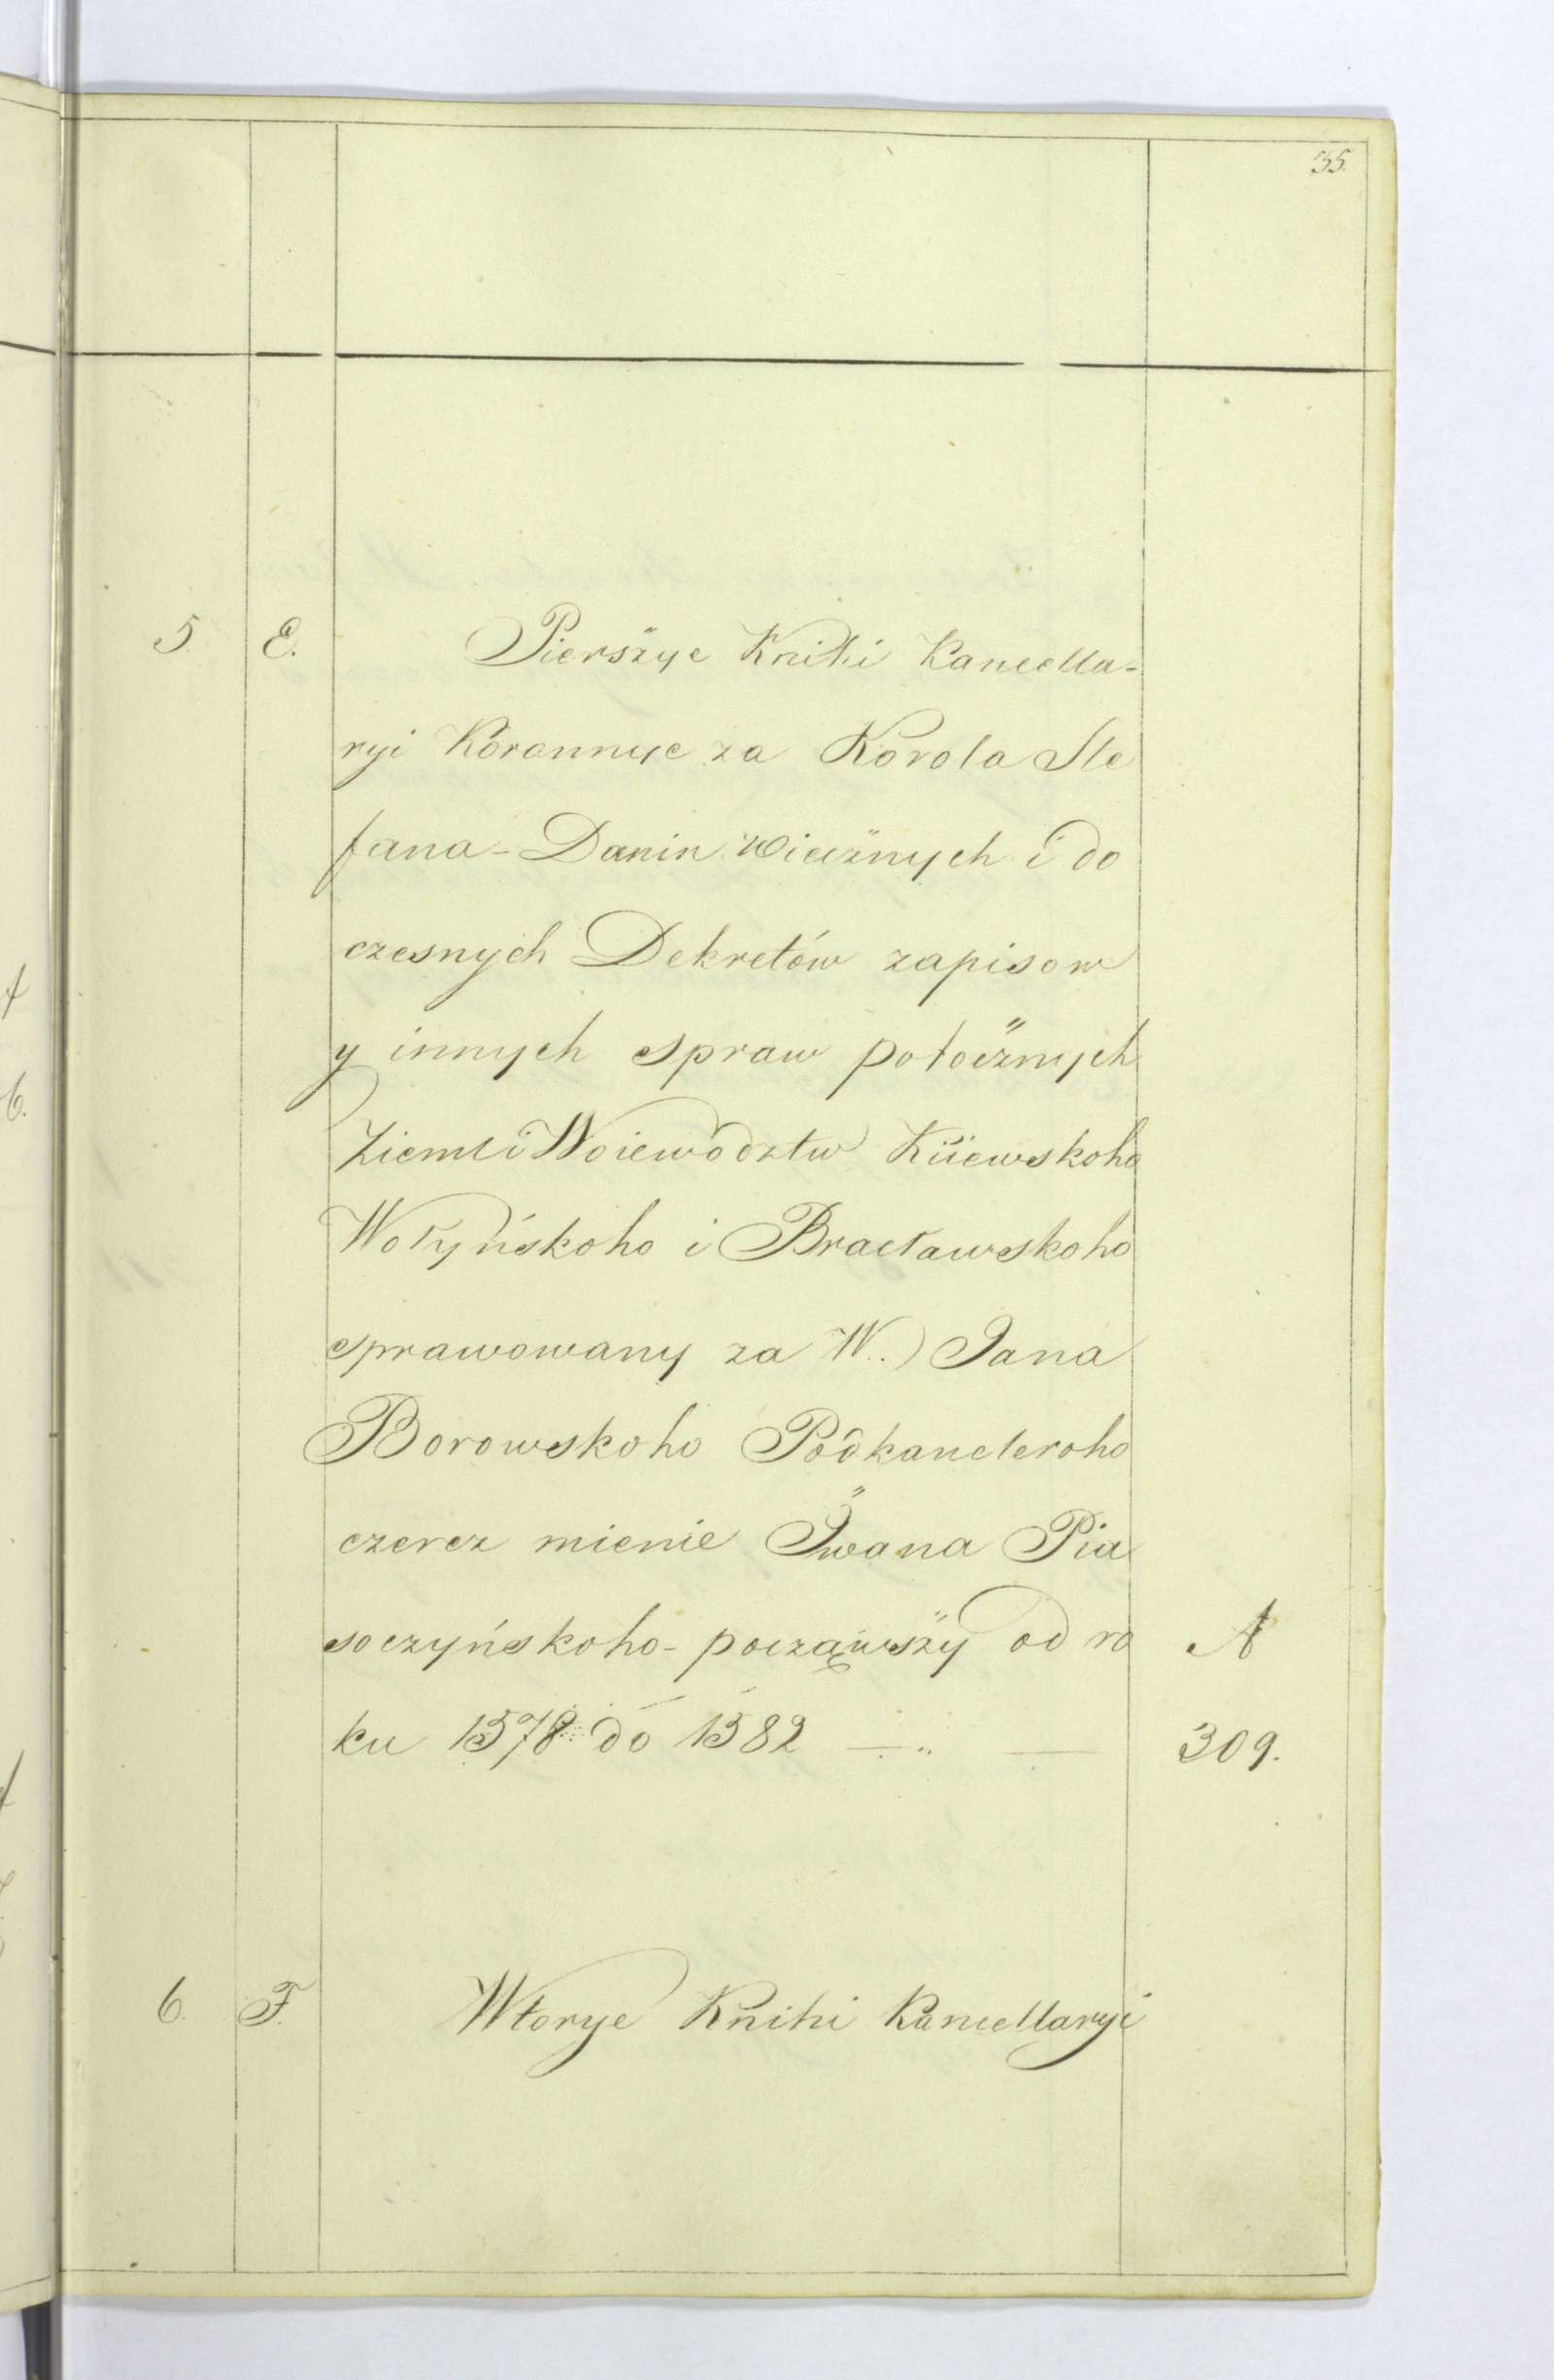 35.
5 E. Pierszye Knihi Kancella-
ryi Koronnye za Korola Ste
fana - Danin wiecznych i do
czesnych Dekretów zapisow
y innych spraw potocznych
Ziemli Woiewodztw Kiiewskoho
Wołyńskoho i Bracławskoho
sprawowany za W. Jana
Borowskoho Podkancleroho
czerez mienie Iwana Pia
soczyńskoho - począwszy od ro A
ku 1578 do 1582 — „ — 309.
6. F. Wtorye Knihi Kancellaryi